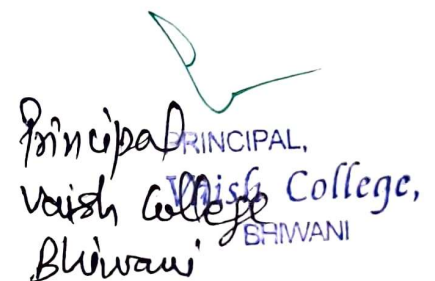 Principal
Vaish College
Bhiwani
PRINCIPAL,
Vaish College,
BHIWANI